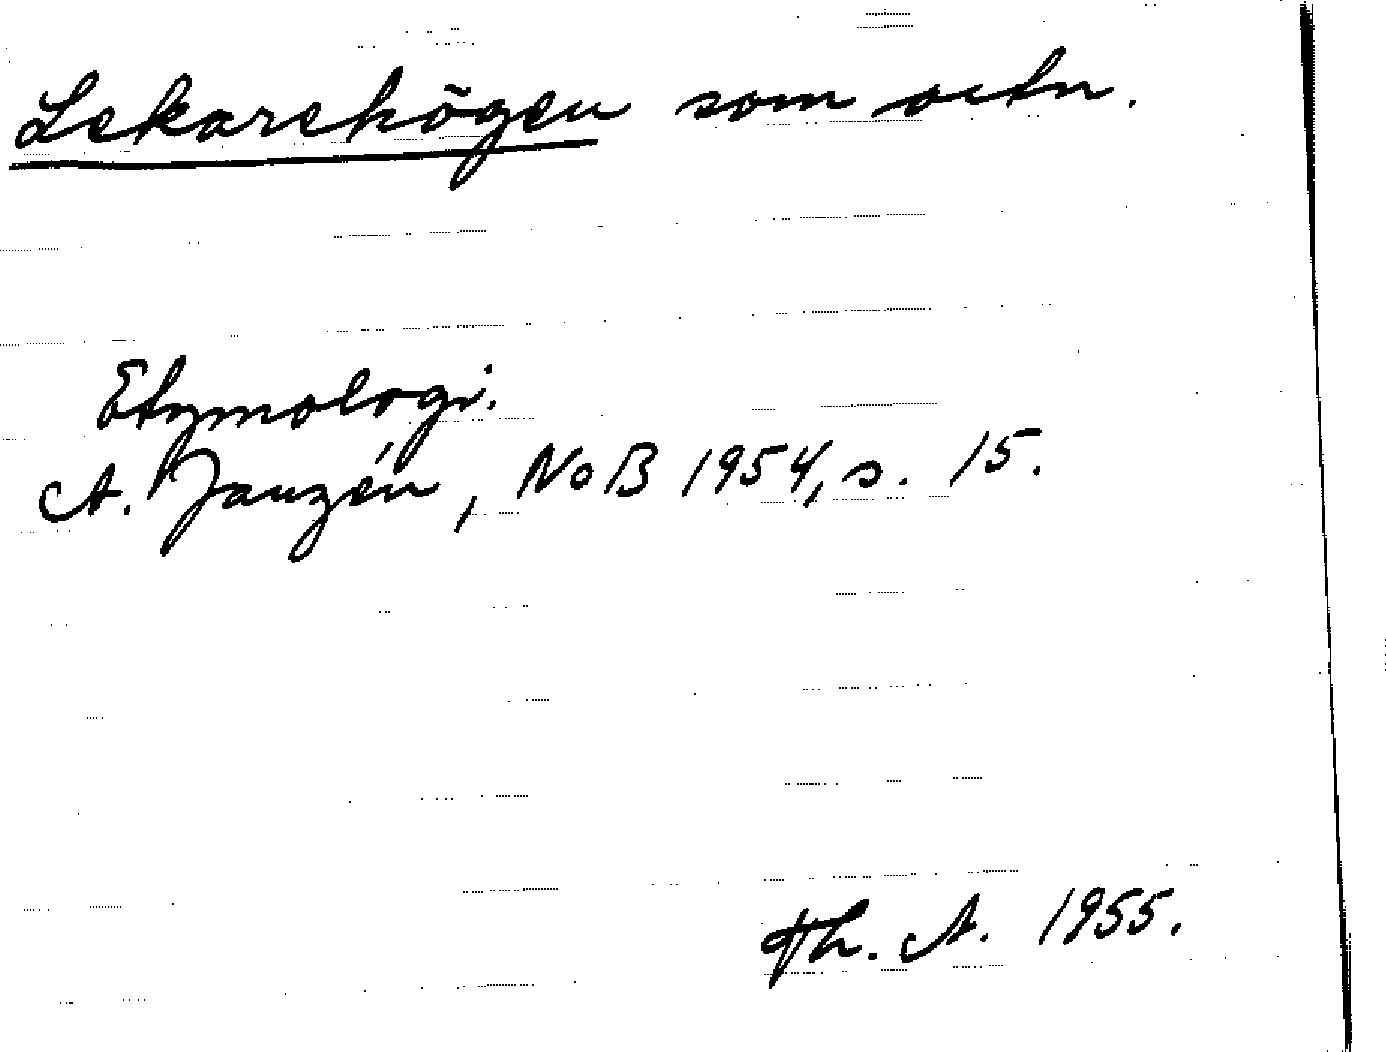 Lekarehögen som ortn.
Etymologi.
A. Janzén, NoB 1954, s. 15.
Th. A. 1955.